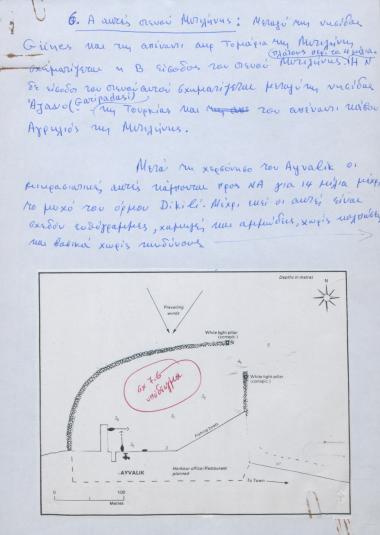 6. Α ακτές στενού Μυτιλήνης: Μεταξύ της νησίδας
Güneş και της απέναντι της Μυτιλήνης
πλάτους περί τα μίλια
σχηματίζεται η Β είσοδος του στενού Μυτιλήνης. Η Ν
δε είσοδος του στενού αυτού σχηματίζεται μεταξύ της νησίδας
(Garipadasi)
της Τουρκίας και του απέναντι κάβου
Αγριλιός της Μυτιλήνης.
Μετά της χερσόνησο του Ayvalik οι
μικρασιατικές ακτές κάμπτονται προς ΝΑ για 14 μίλια μέχρι
το μυχό του όρμου Dikili. Μέχρι εκεί οι ακτές είναι
σχεδόν ευθύγραμμες, χαμηλές και αμμώδεις, χωρίς κολπώσεις
και βασικά χωρίς κινδύνους
Depths in metres
N
Prevailing
winds
White light pillar
(conspic.)
White light pillar
(conspic.)
σχ 7.6
υπόδειγμα
Fishing boats
AYVALIK
Harbour office/Restaurant
planned
To Town
0 100
Metres